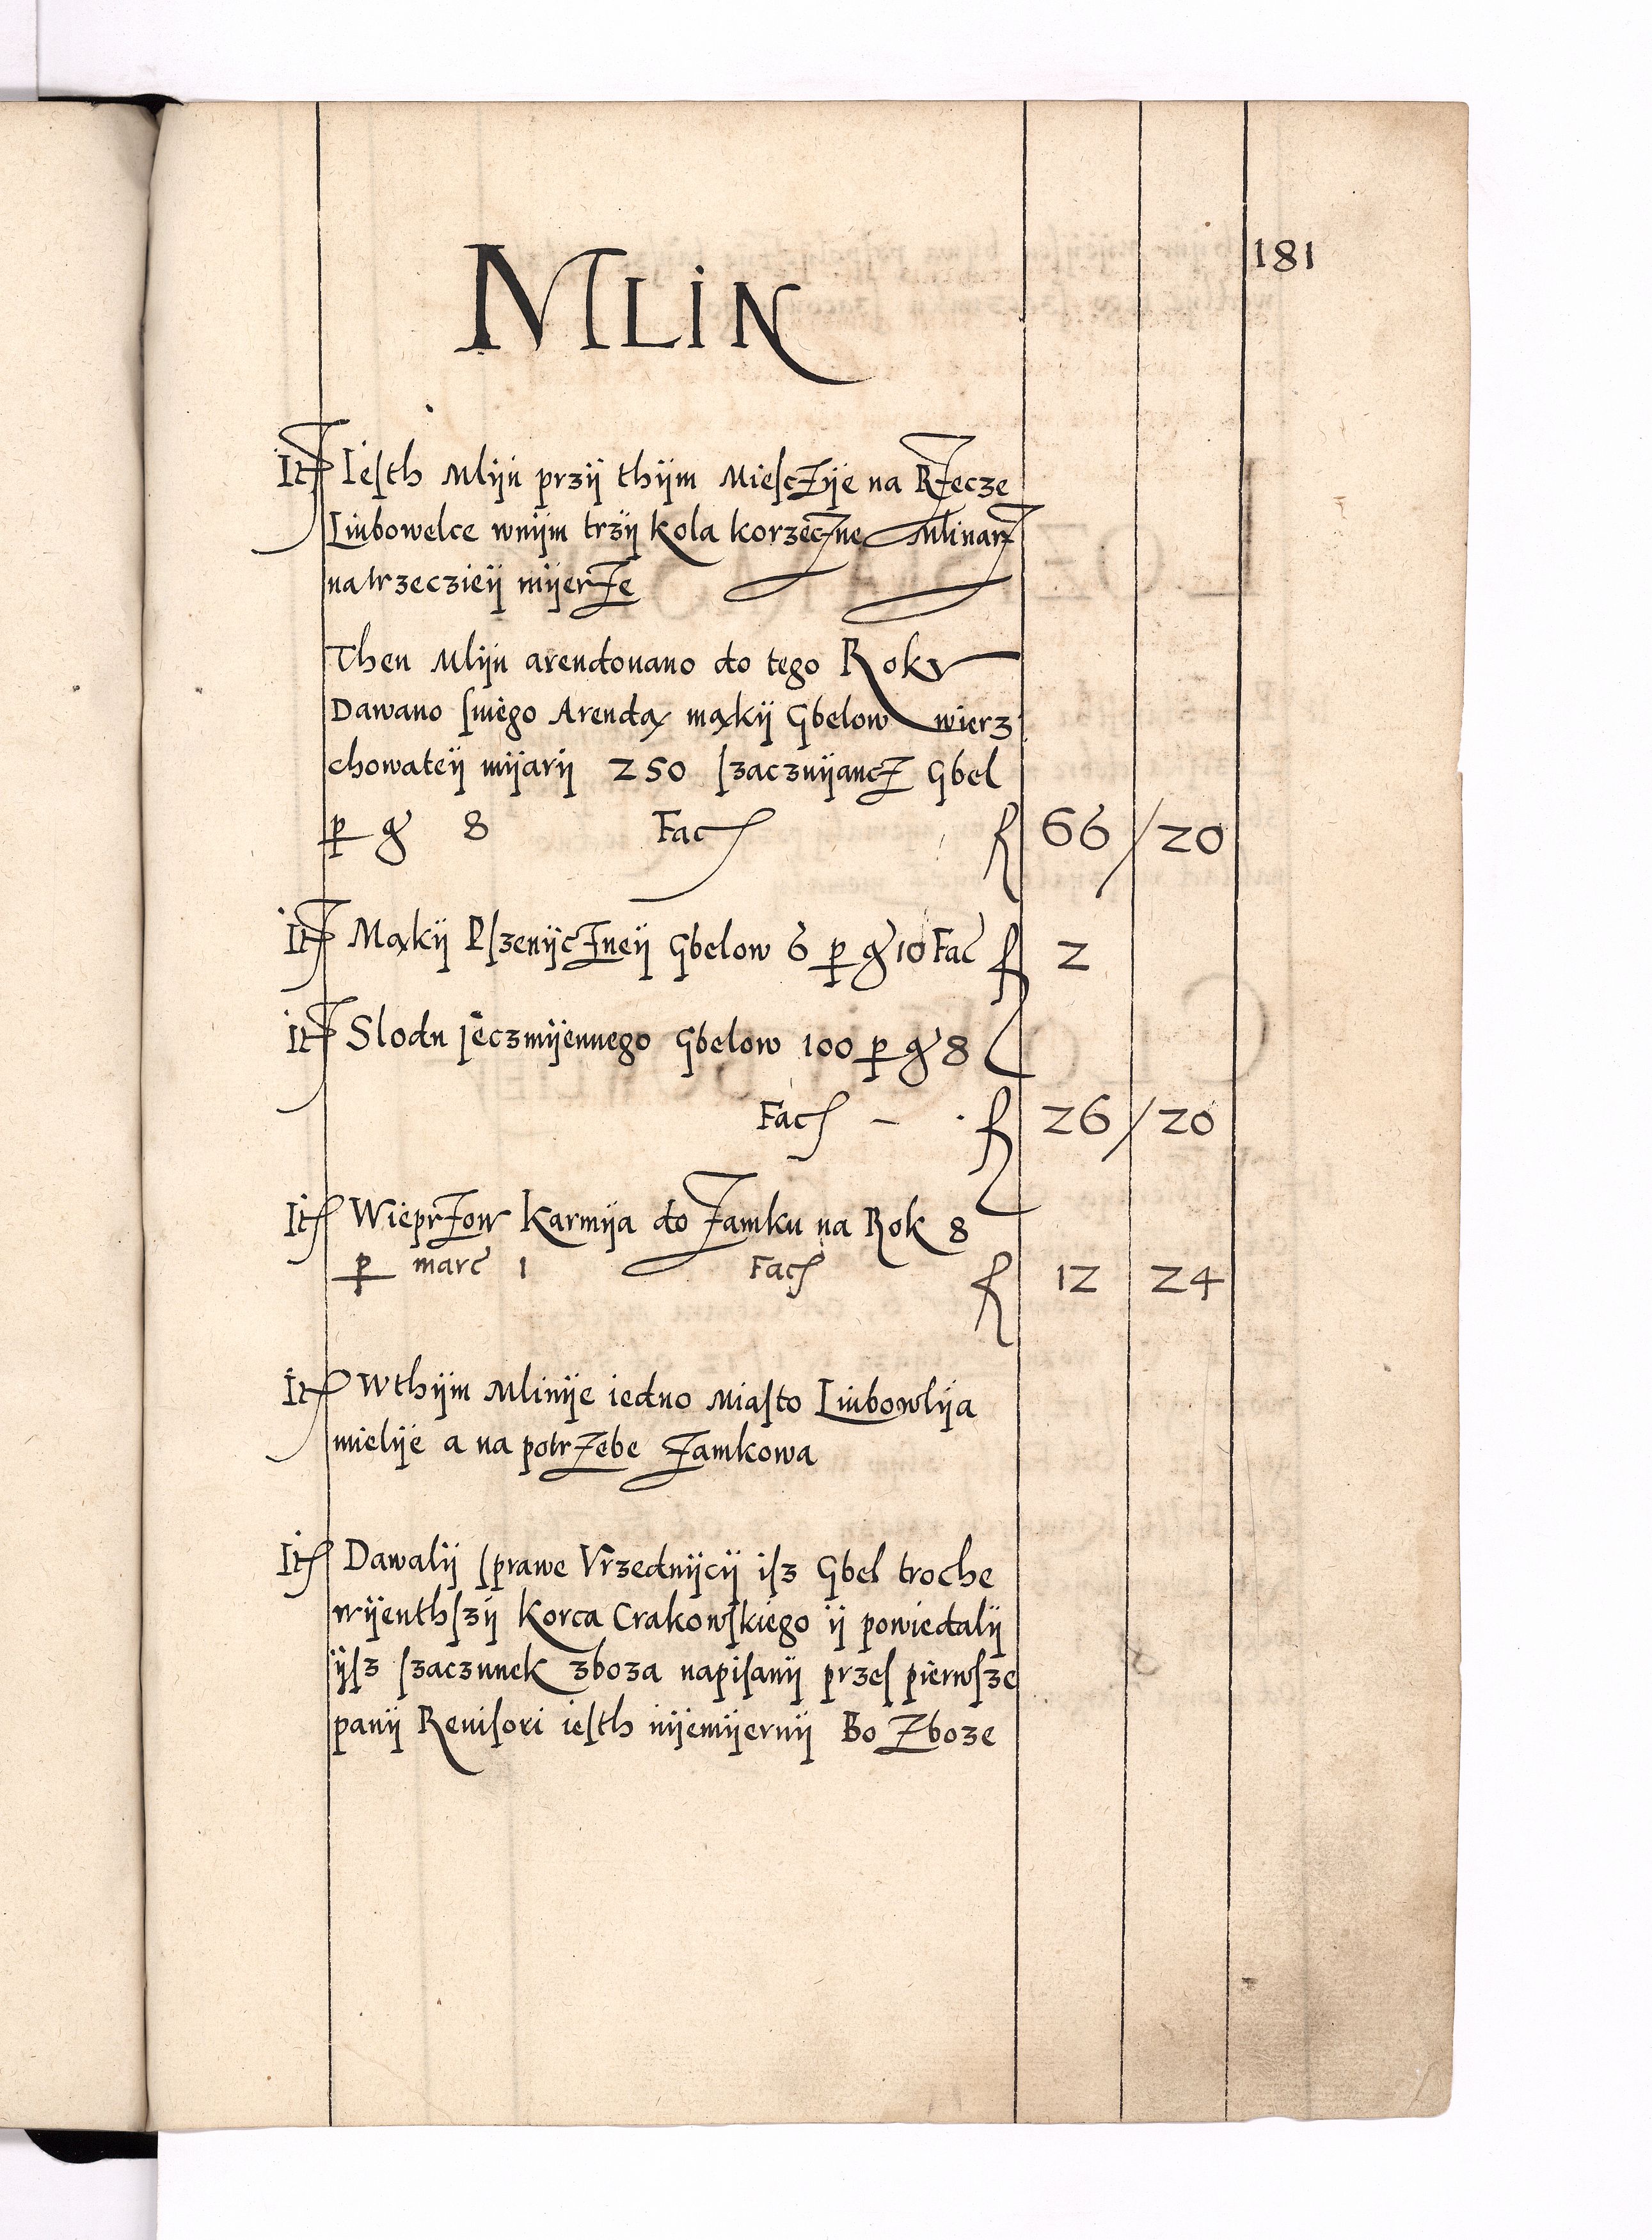 181
MLiN
Itē Ieſth Mlÿn przÿ thÿm MieſcZÿe na RZecze
Liubowelce wnÿm trzÿ kola korzecZne MlinarZ
na trzeczieÿ mÿerZe
Then Mlÿn arendouano do tego Roku
Dawano ſniego Arendą mąkÿ Gbelow wierz
chowateÿ mÿarÿ 250 ſzacznÿancZ Gbel
p gͬ 8 Facͭ f 66 / 20
Itē Mąkÿ PſzenÿcZneÿ Gbelow 6 p gͬ 10 Facͭ f 2
Itē Slodu ieczmÿennego Gbelow 100 p gͬ 8
Facͭ – f 26 / 20
Itē WieprZow Karmÿa do Zamku na Rok 8
p marc 1 Facͭ f 12 24
Itē Wthÿm Mlinÿe iedno Miaſto Liubowlÿa
mielÿe a na potrZebe Zamkowa
Itē Dawalÿ ſprawe Vrzednÿcÿ iſz Gbel troche
wÿenthſzÿ Korca Crakowſkiego ÿ powiedalÿ
ÿſz ſzacznnek zboza napiſanÿ przeſ pierwſze
panÿ Reuiſori ieſth nÿemÿernÿ Bo Zboze